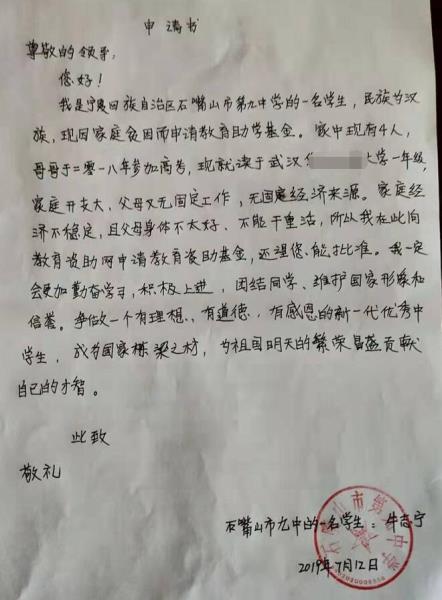 申请书
尊敬的领导:
您好!
我是宁夏回族自治区石嘴山市第九中学的一名学生,民族为汉
族,现因家庭贫困而申请教育助学基金。家中现有4人,
哥哥于二零一八年参加高考,现就读于武汉 大学一年级,
家庭开支大、父母又无固定工作,无固定经济来源。家庭经
济不稳定,且父母身体不太好、不能干重活,所以我在此向
教育资助网申请教育资助基金,还望您能批准。我一定
会更加勤奋学习,积极上进,团结同学、维护国家形象和
信誉。争做一个有理想、有道德、有感恩的新一代优秀中
学生,成为国家栋梁之材,为祖国明天的繁荣昌盛贡献
自己的才智。
此致
敬礼
石嘴山市九中的一名学生:牛志宁
2019年7月12日
石嘴山市第九中学